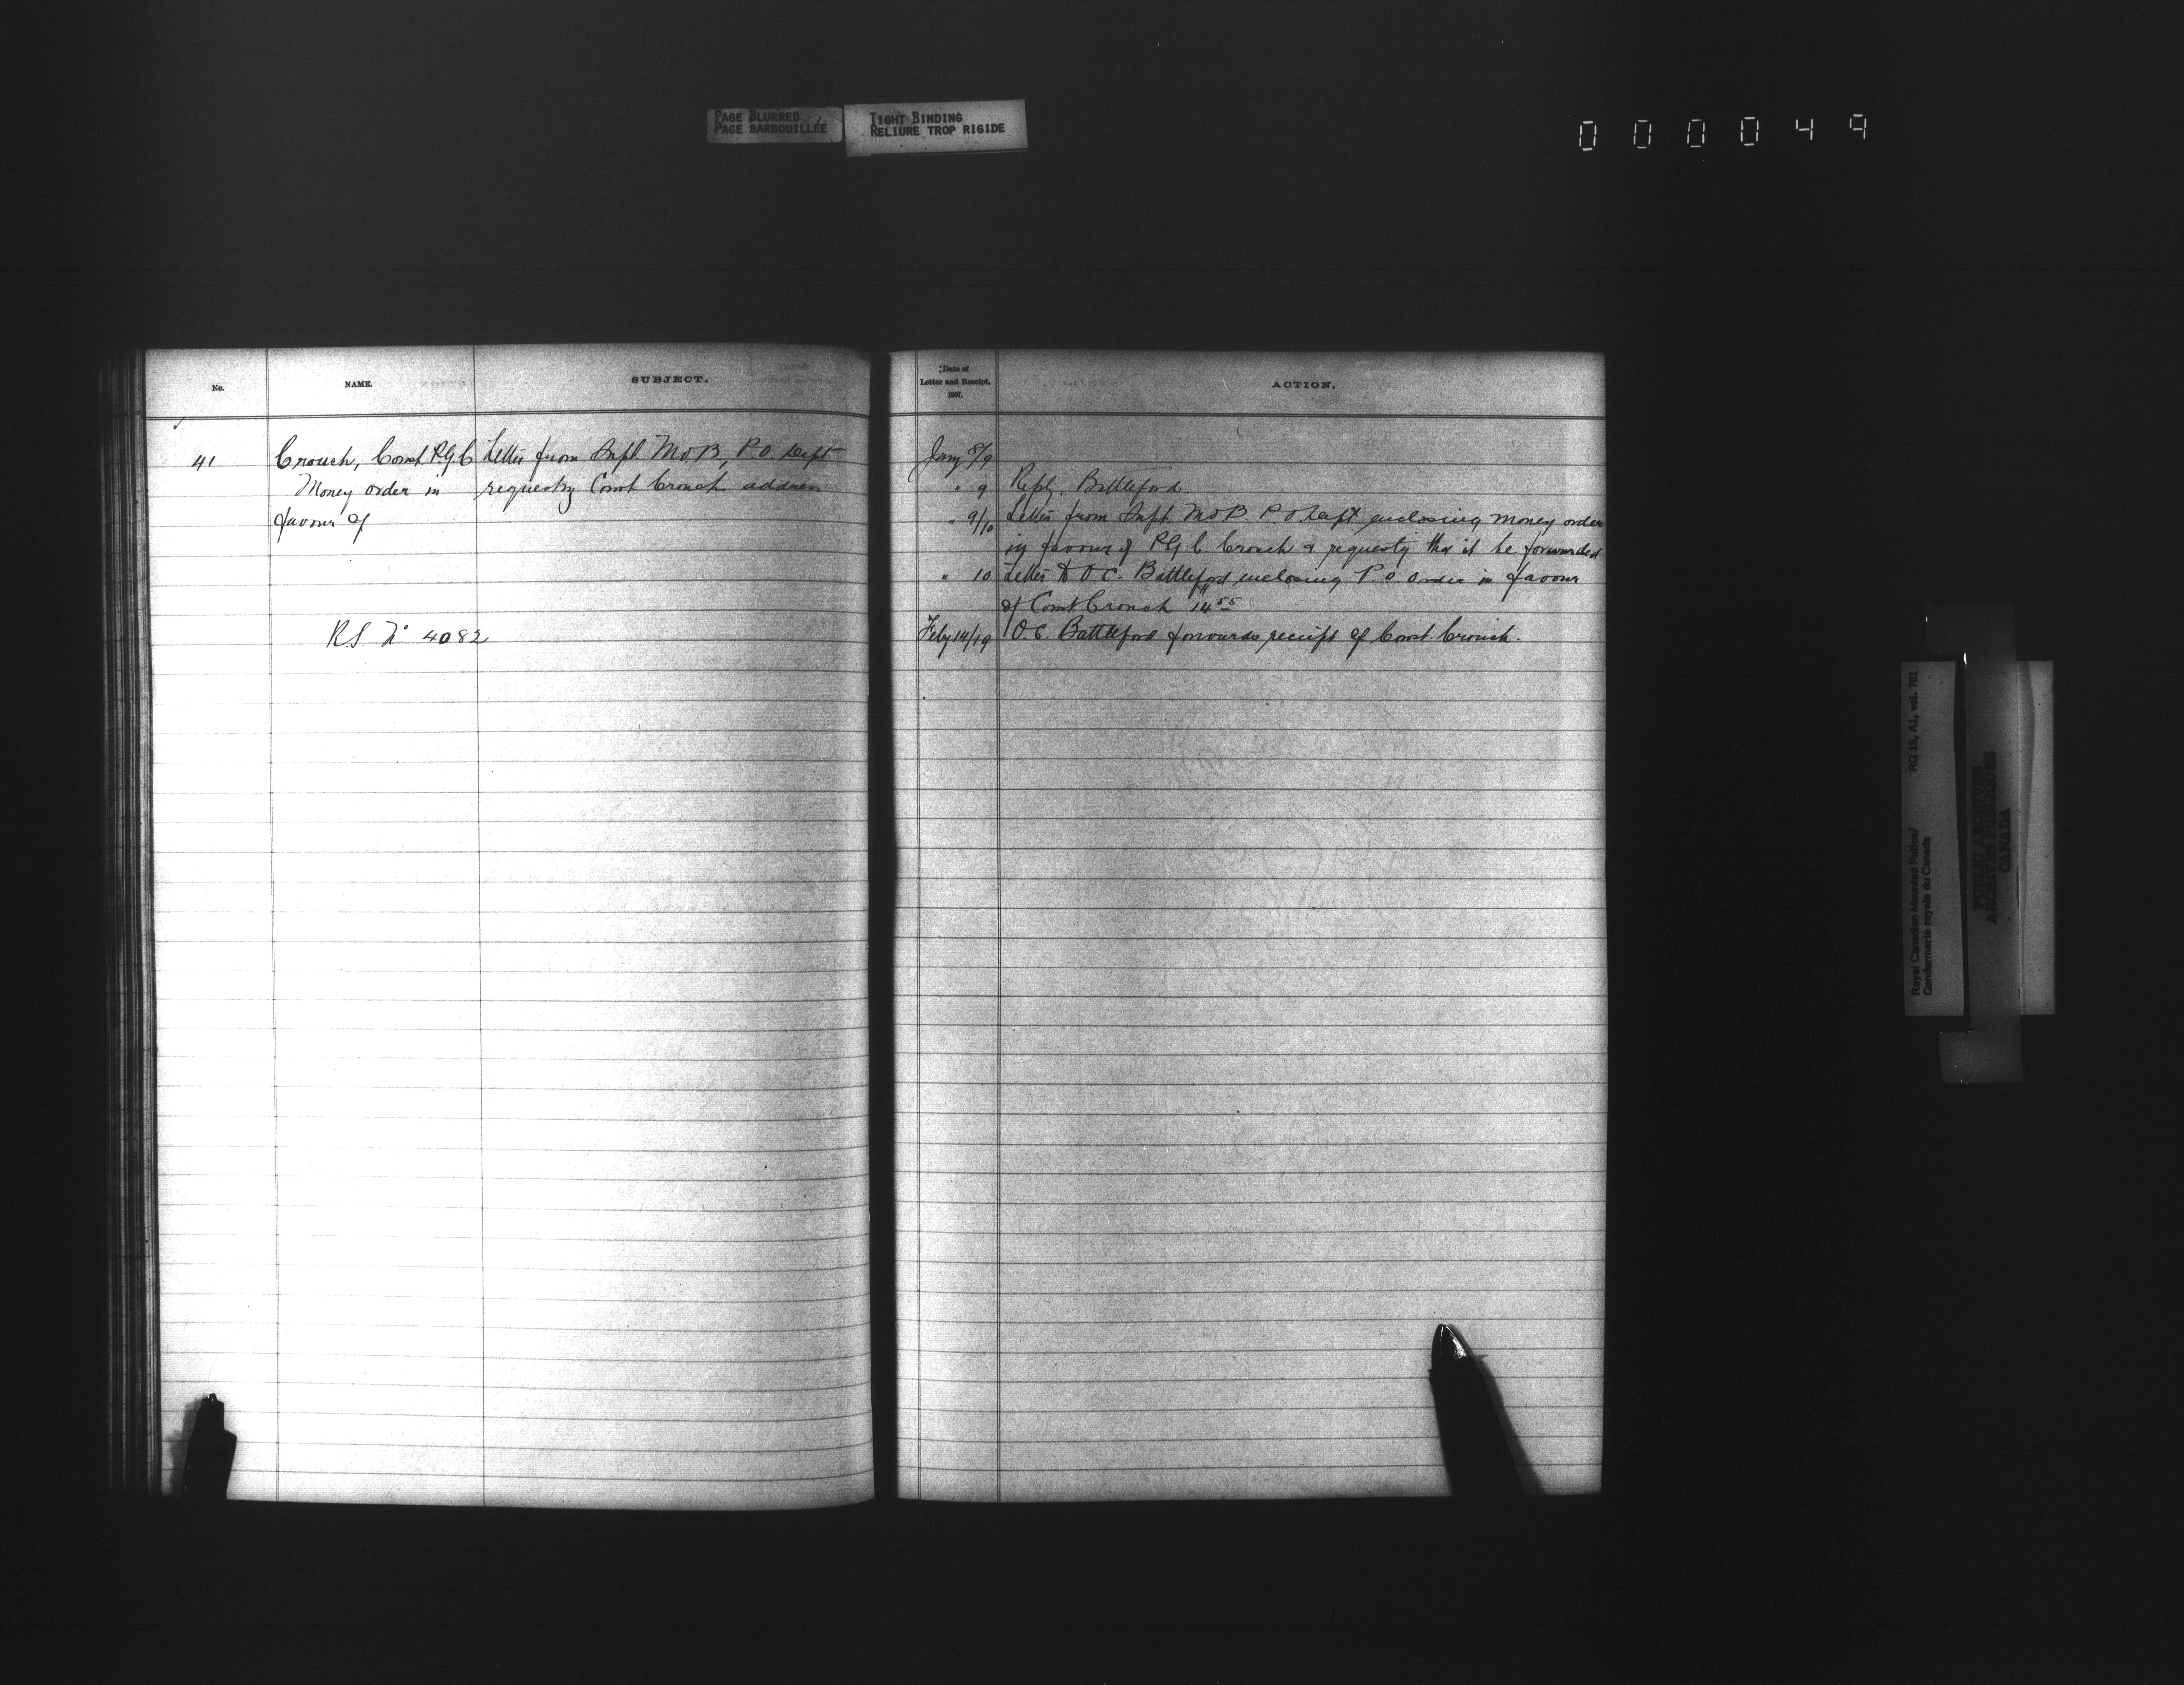 PAGE BLURRED
PAGE BARBOUILLÉE
TIGHT BINDING
RELIURE TROP RIGIDE
000049
No.
NAME.
SUBJECT.
41
Crouch, Const R.G.C
Money order in
favour of
R.S. No 4082
Letter from Supt M.O.B, P.O. Dept
requestg Const Crouch address
Date of
Letter and Receipt.
1907.
ACTION.
Jany 8/9
" 9 Reply. Battleford.
" 9/10 Letter from Supt. M.O.B. P.O. Dept enclosing money order
in favour of R.G.C. Crouch & requestg that it be forwarded
" 10 Letter to O.C. Battleford enclosing P.O. Order in favour
of Const Crouch $14.55
Feby 14/19 O.C. Battleford forwards receipt of Const. Crouch.
Royal Canadian Mounted Police/
Gendarmerie royale du Canada
RG 18, A1, vol. 701
PUBLIC ARCHIVES
ARCHIVES PUBLIQUES
CANADA